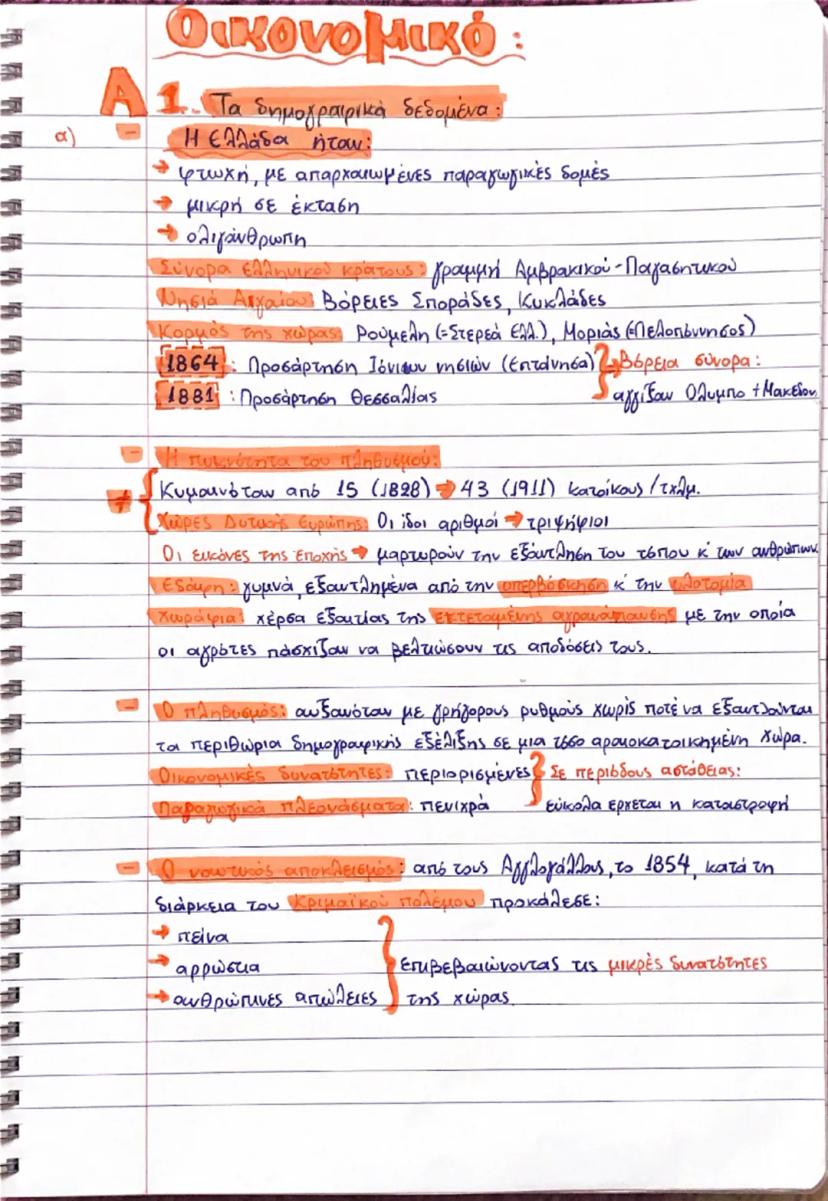 Οικονομικό:
Α 1. Τα δημογραφικά δεδομένα:
α) - Η Ελλάδα ήταν:
→ φτωχή, με απαρχαιωμένες παραγωγικές δομές
→ μικρή σε έκταση
→ ολιγάνθρωπη
Σύνορα ελληνικού κράτους: γραμμή Αμβρακικού-Παγασητικού
Νησιά Αιγαίου: Βόρειες Σποράδες, Κυκλάδες
Κορμός της χώρας: Ρούμελη (=Στερεά Ελλ.), Μοριάς (=Πελοπόννησος)
1864: Προσάρτηση Ιόνιων νησιών (Επτάνησα) } → Βόρεια σύνορα:
1881: Προσάρτηση Θεσσαλίας } αγγίζαν Όλυμπο + Μακεδον
- Η πυκνότητα του πληθυσμού:
Κυμαινόταν από 15 (1828) → 43 (1911) κατοίκους/τχλμ.
Χώρες Δυτικής Ευρώπης: Οι ίδοι αριθμοί → τριψήφιοι
Οι εικόνες της εποχής → μαρτυρούν την εξάντληση του τόπου κ' των ανθρώπων
Εδάφη: γυμνά, εξαντλημένα από την υπερβόσκηση κ' την υλοτομία
Χωράφια: χέρσα εξαιτίας της εκτεταμένης αγρανάπαυσης με την οποία
οι αγρότες πάσχιζαν να βελτιώσουν τις αποδόσεις τους.
- Ο πληθυσμός: αυξανόταν με γρήγορους ρυθμούς χωρίς ποτέ να εξαντλούνται
τα περιθώρια δημογραφικής εξέλιξης σε μια τόσο αραιοκατοικημένη χώρα.
Οικονομικές δυνατότητες: περιορισμένες } Σε περιόδους αστάθειας:
Παραγωγικά πλεονάσματα: πενιχρά } εύκολα έρχεται η καταστροφή
- Ο ναυτικός αποκλεισμός: από τους Αγγλογάλλους, το 1854, κατά τη
διάρκεια του Κριμαϊκού πολέμου προκάλεσε:
→ πείνα
→ αρρώστια } επιβεβαιώνοντας τις μικρές δυνατότητες
→ ανθρώπινες απώλειες } της χώρας